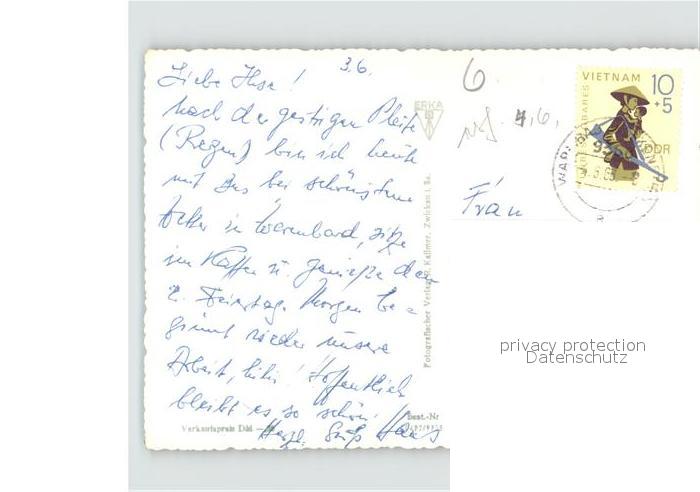 3.6.
Liebe Ilse!
nach der gestrigen Pleite
(Regen) bin ich heute
mit Bus bei schönstem
Wetter in Warmbad, sitze
im Kaffee u. genieße den
2. Feiertag. Morgen be-
ginnt wieder unsere
Arbeit, hihi! Hoffentlich
bleibt es so schön!
Herzl. Grüß Hans
Verkaufspreis DM
Best.-Nr
ERKA
Fotografischer Verlag R. Kallmer, Zwickau i. Sa.
6
4.6.
Frau
VIETNAM 10
+5
DDR
privacy protection
Datenschutz